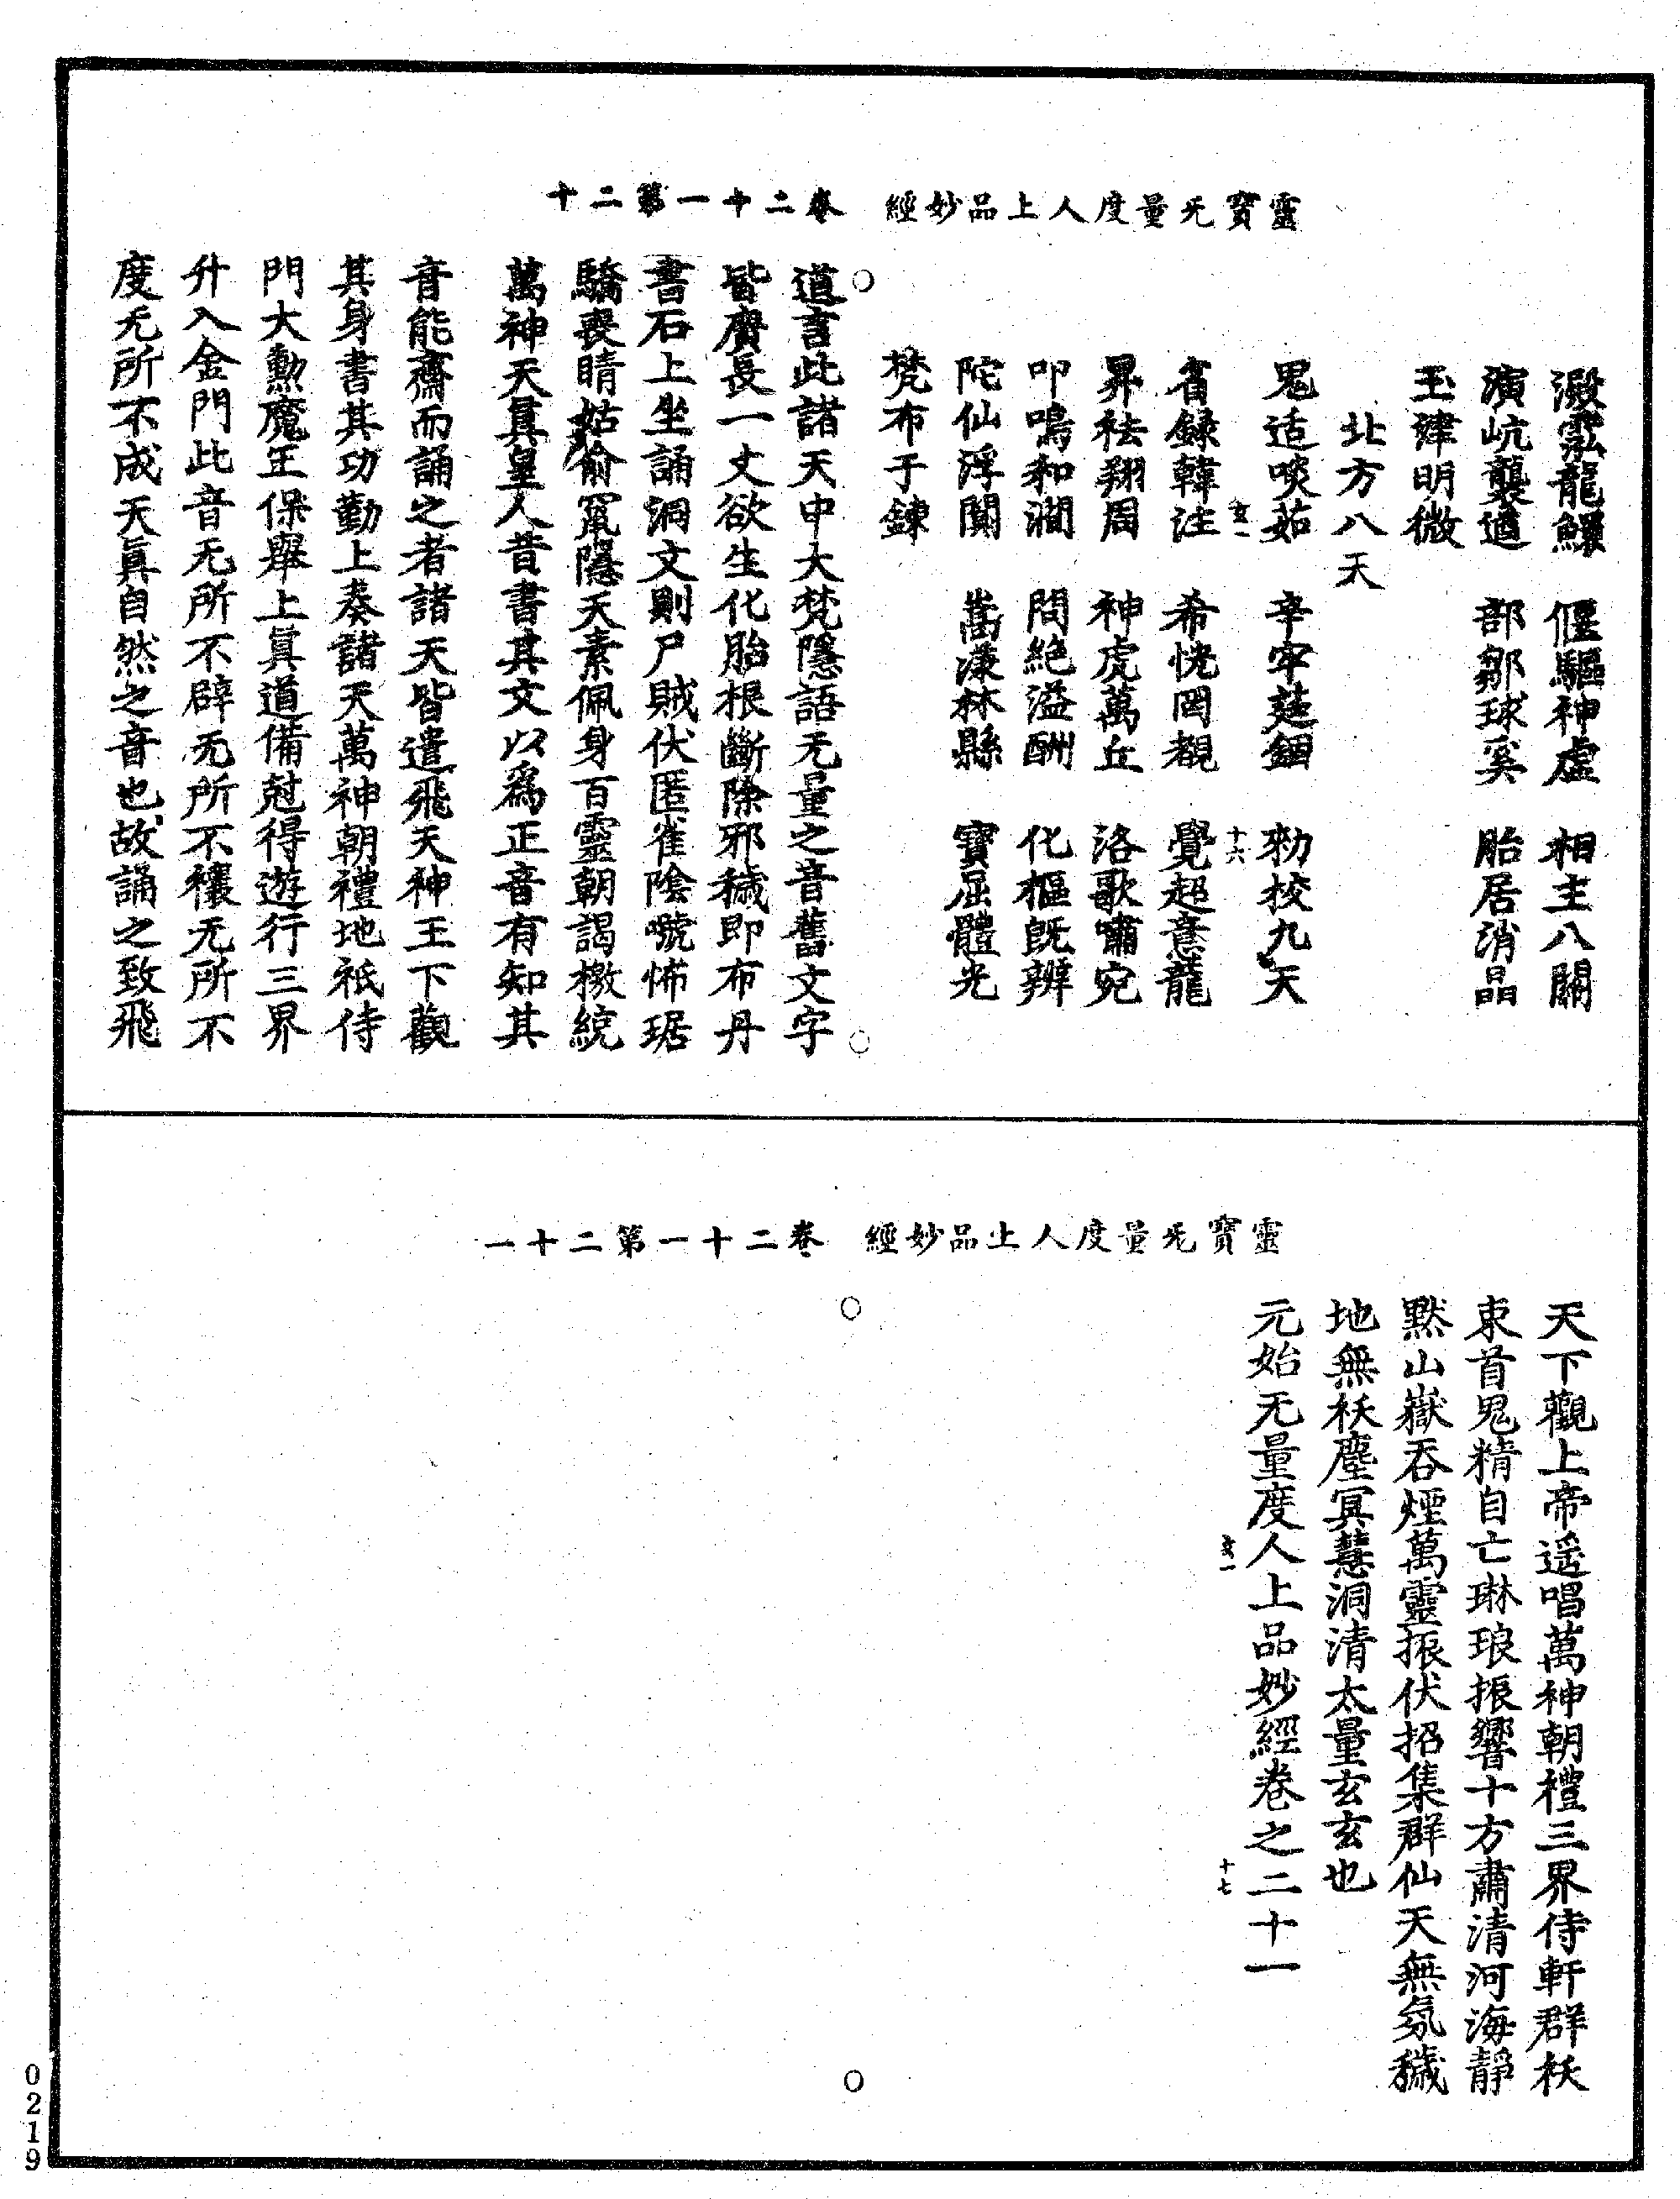 靈寶无量度人上品妙經 卷二十一第二十
龍 偃驅神虛 相主八關
演峴襲逎 部鄒球奚 胎居消晶
玉津明微
北方八天
鬼适啖茹 辛牢莚錮 勑校九天
玄一 十六
省錄韓註 希恍罔覩 覺超意龍
昇袪翔周 神虎萬丘 洛歌嘯宛
叩鳴和澗 問絕溢酬 化樞旣辨
陀仙浮關 嵩漾林縣 寶屈體光
梵布于鍊
道言此諸天中大梵隱語无量之音舊文字
皆廣長一丈欲生化胎根斷除邪穢即布丹
書石上坐誦洞文則尸賊伏匿雀陰號怖琚
驕喪睛姑俞罝隱天素佩身百靈朝謁檄統
萬神天眞皇人昔書其文以爲正音有知其
音能齋而誦之者諸天皆遣飛天神王下觀
其身書其功勤上奏諸天萬神朝禮地祇侍
門大勳魔王保舉上眞道備尅得遊行三界
升入金門此音无所不辟无所不禳无所不
度无所不成天眞自然之音也故誦之致飛
靈寶无量度人上品妙經 卷二十一第二十一
天下觀上帝遥唱萬神朝禮三界侍軒群祅
束首鬼精自亡琳琅振響十方肅清河海靜
默山嶽吞煙萬靈振伏招集群仙天無氛穢
地無祅塵冥慧洞清太量玄玄也
元始无量度人上品妙經卷之二十一
玄一 十七
0219